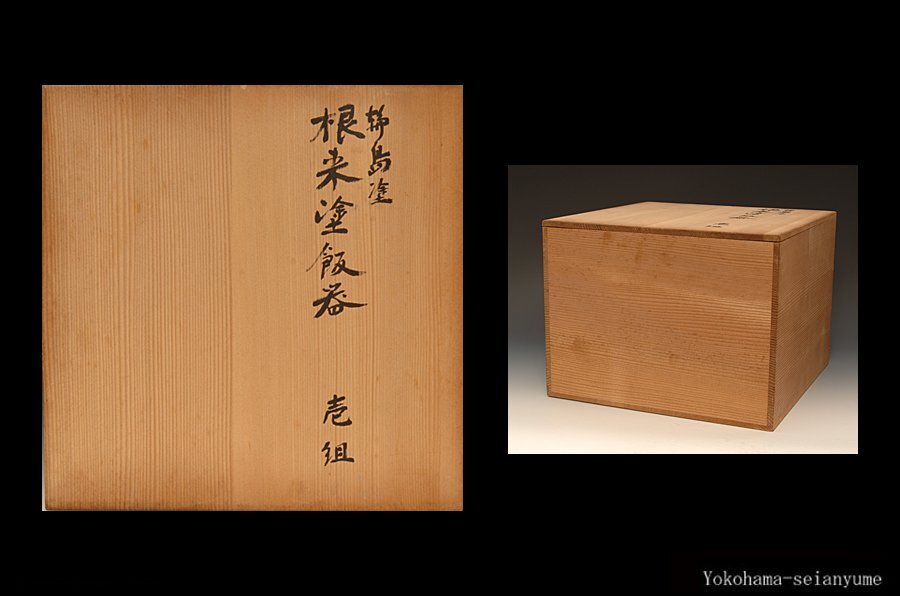 輪島塗
根来塗飯器 壱組
Yokohama-seianyume